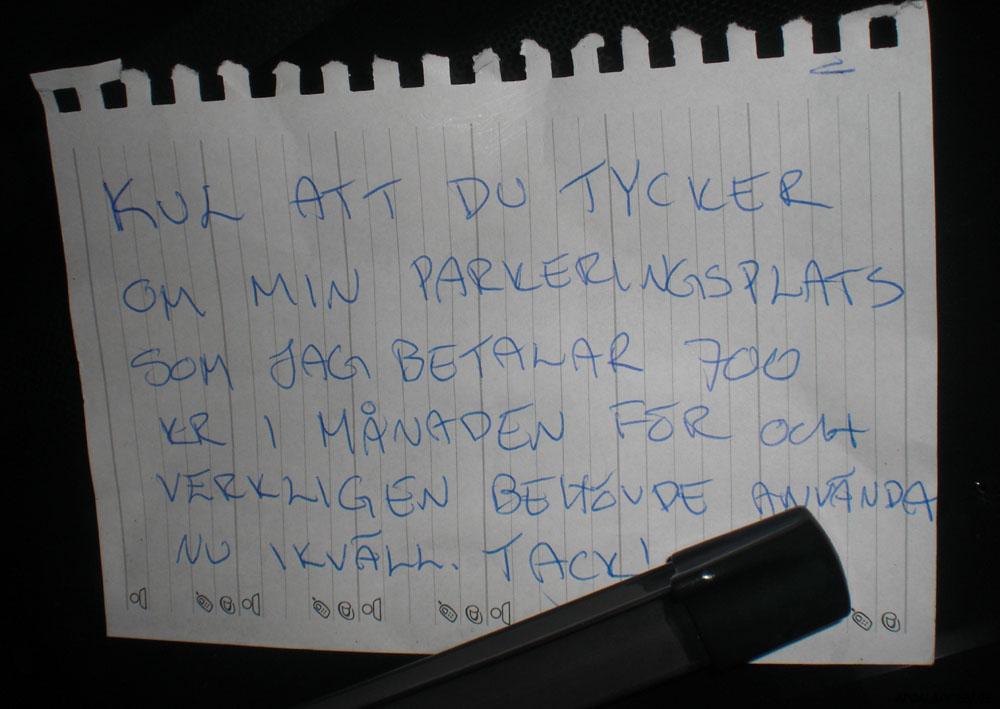 KUL ATT DU TYCKER
OM MIN PARKERINGSPLATS
SOM JAG BETALAR 700
KR I MÅNADEN FÖR OCH
VERKLIGEN BEHÖVDE ANVÄNDA
NU IKVÄLL. TACK!